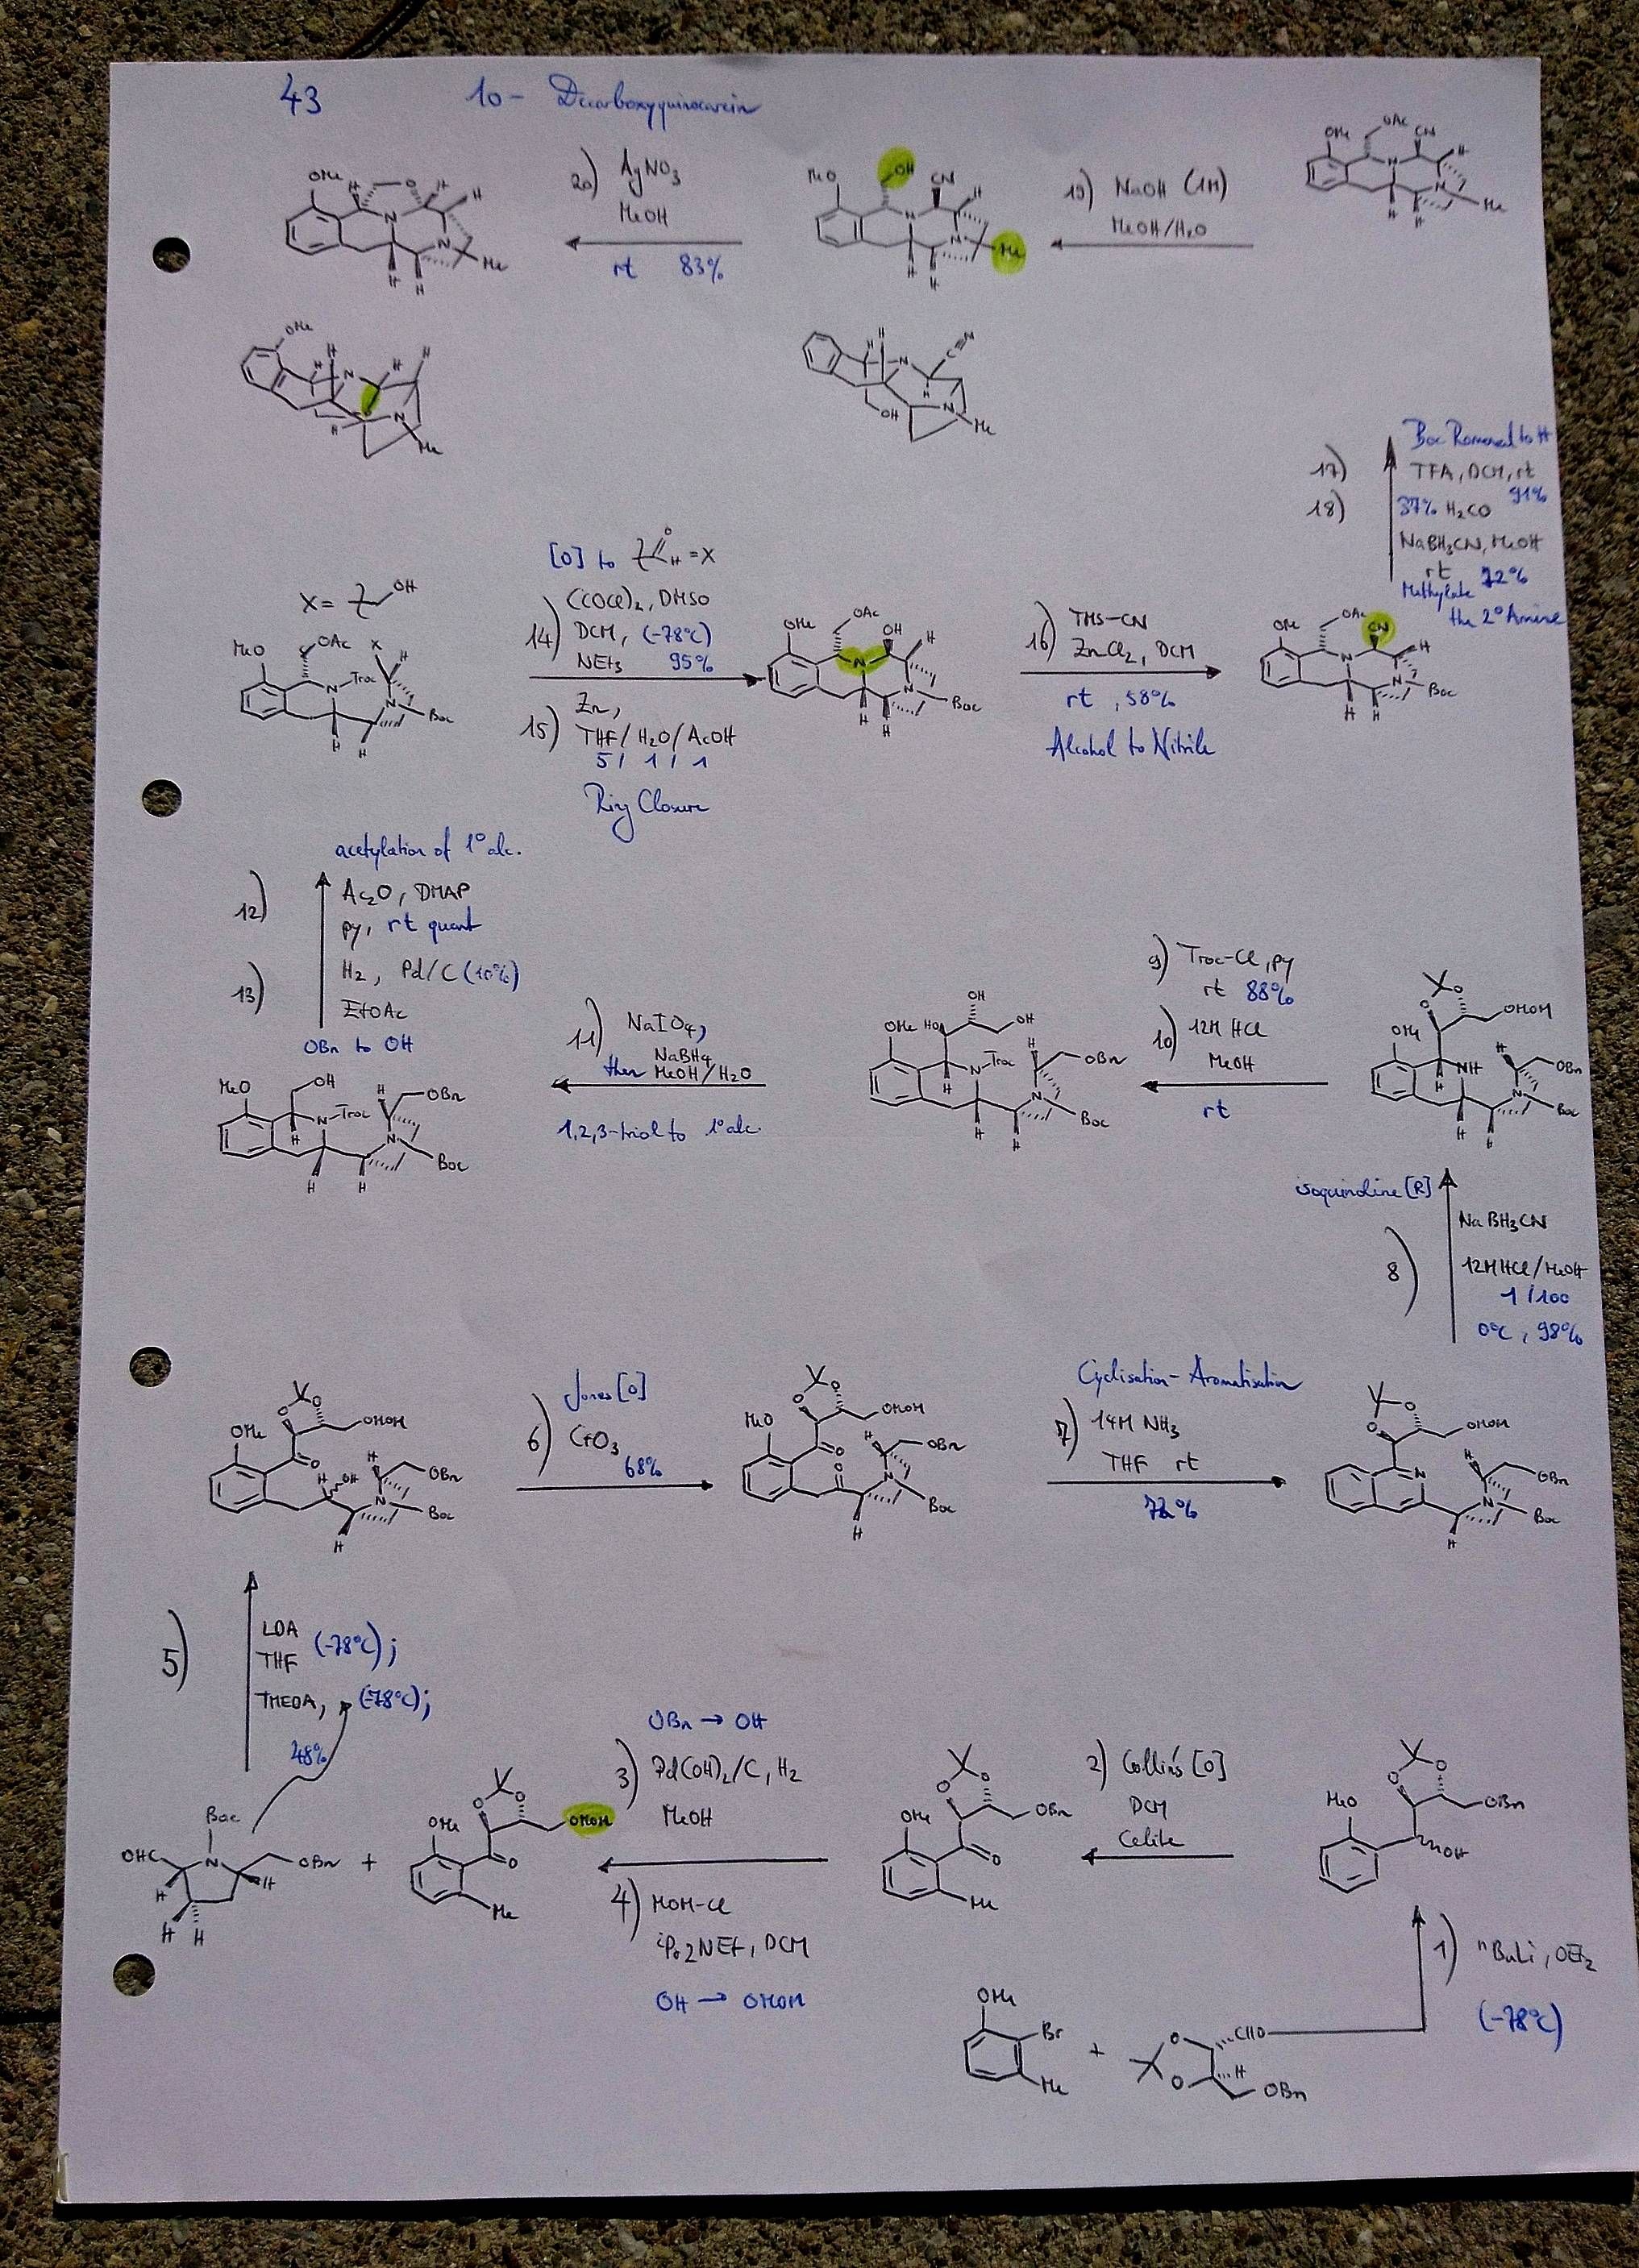 43 10- Decarboxyquinocarcin
OMe H O H H
N N Me
H H
20) AgNO3
MeOH
rt 83%
MeO OH CN H
N N Me
H H
19) NaOH (1M)
MeOH/H2O
OMe OAc CN H
N N Me
H H
OMe H H H H
N O N
H Me
H N C≡N
H N
OH Me
17) Boc Removed to H
TFA, DCM, rt
91%
18) 37% H2CO
NaBH3CN, MeOH
rt 72%
Methylate
the 2° Amine
[O] to O H = X
14) (COCl)2, DMSO
DCM, (-78°C)
NEt3 95%
15) Zn,
THF/H2O/AcOH
5/ 1/ 1
Ring Closure
X= OH
MeO OAc X H
N Troc N Boc
H H
OMe OAc OH H
N N Boc
H H
16) TMS-CN
ZnCl2, DCM
rt, 58%
Alcohol to Nitrile
OMe OAc CN H
N N Boc
H H
acetylation of 1° alc.
12) Ac2O, DMAP
py, rt quant
13) H2, Pd/C (10%)
EtOAc
OBn to OH
MeO OH H OBn
N Troc N Boc
H H H
11) NaIO4,
NaBH4
then MeOH/H2O
1,2,3-triol to 1° alc.
OH
OMe HO OH H OBn
N Troc N Boc
H H H
9) Troc-Cl, py
rt 88%
10) 12M HCl
MeOH
rt
O O OMOM
OMe H OBn
NH N Boc
H H H
isoquinoline [R]
8) NaBH3CN
12M HCl/MeOH
1/100
0°C, 98%
O O OMOM
OMe O H OH H OBn
N Boc
H
6) Jones [O]
CrO3
68%
O O OMOM
MeO O O H OBn
N Boc
H
Cyclisation-Aromatisation
7) 14M NH3
THF rt
72%
O O OMOM
N H OBn
N Boc
H
5) LDA
THF (-78°C);
TMEDA, (-78°C);
48%
Boc
OHC N OBn
H H
H H
+
O O OMOM
OMe O
Me
OBn → OH
3) Pd(OH)2/C, H2
MeOH
4) MOM-Cl
iPr2NEt, DCM
OH → OMOM
O O OBn
OMe O
Me
2) Collins [O]
DCM
Celite
O O OBn
MeO
OH
1) nBuLi, OEt2
(-78°C)
OMe
Br
Me
+
O CHO
O H
OBn